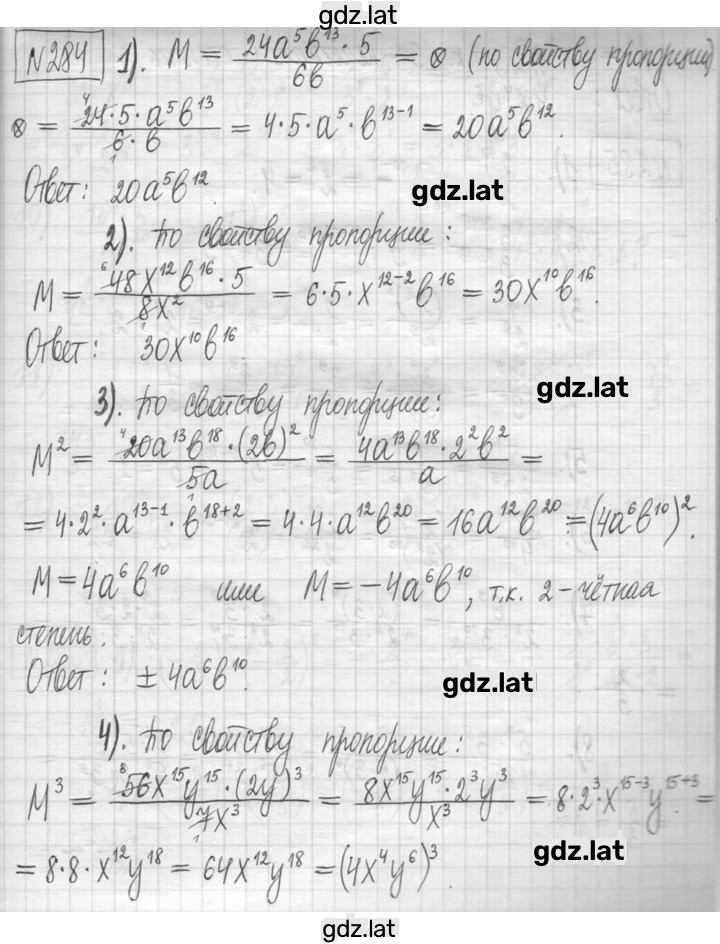 gdz.lat
№284 1). M = 24a⁵b¹³ · 5 / 6b = ⊗ (по свойству пропорции)
⊗ = 24·5·a⁵b¹³ / 6·b = 4·5·a⁵·b¹³⁻¹ = 20a⁵b¹².
4
1
Ответ: 20a⁵b¹².
gdz.lat
2). По свойству пропорции:
M = ⁶48x¹²b¹⁶ · 5 / 8x² = 6·5·x¹²⁻²b¹⁶ = 30x¹⁰b¹⁶.
1
Ответ: 30x¹⁰b¹⁶.
gdz.lat
3). По свойству пропорции:
M² = ⁴20a¹³b¹⁸ · (2b)² / 5a = 4a¹³b¹⁸ · 2²b² / a =
1
= 4·2²·a¹³⁻¹·b¹⁸⁺² = 4·4·a¹²b²⁰ = 16a¹²b²⁰ = (4a⁶b¹⁰)².
M = 4a⁶b¹⁰ или M = −4a⁶b¹⁰, т.к. 2 - чётная
степень.
Ответ: ± 4a⁶b¹⁰.
gdz.lat
4). По свойству пропорции:
M³ = ⁸56x¹⁵y¹⁵ · (2y)³ / 7x³ = 8x¹⁵y¹⁵ · 2³y³ / x³ = 8·2³·x¹⁵⁻³y¹⁵⁺³ =
1
= 8·8·x¹²y¹⁸ = 64x¹²y¹⁸ = (4x⁴y⁶)³.
gdz.lat
gdz.lat